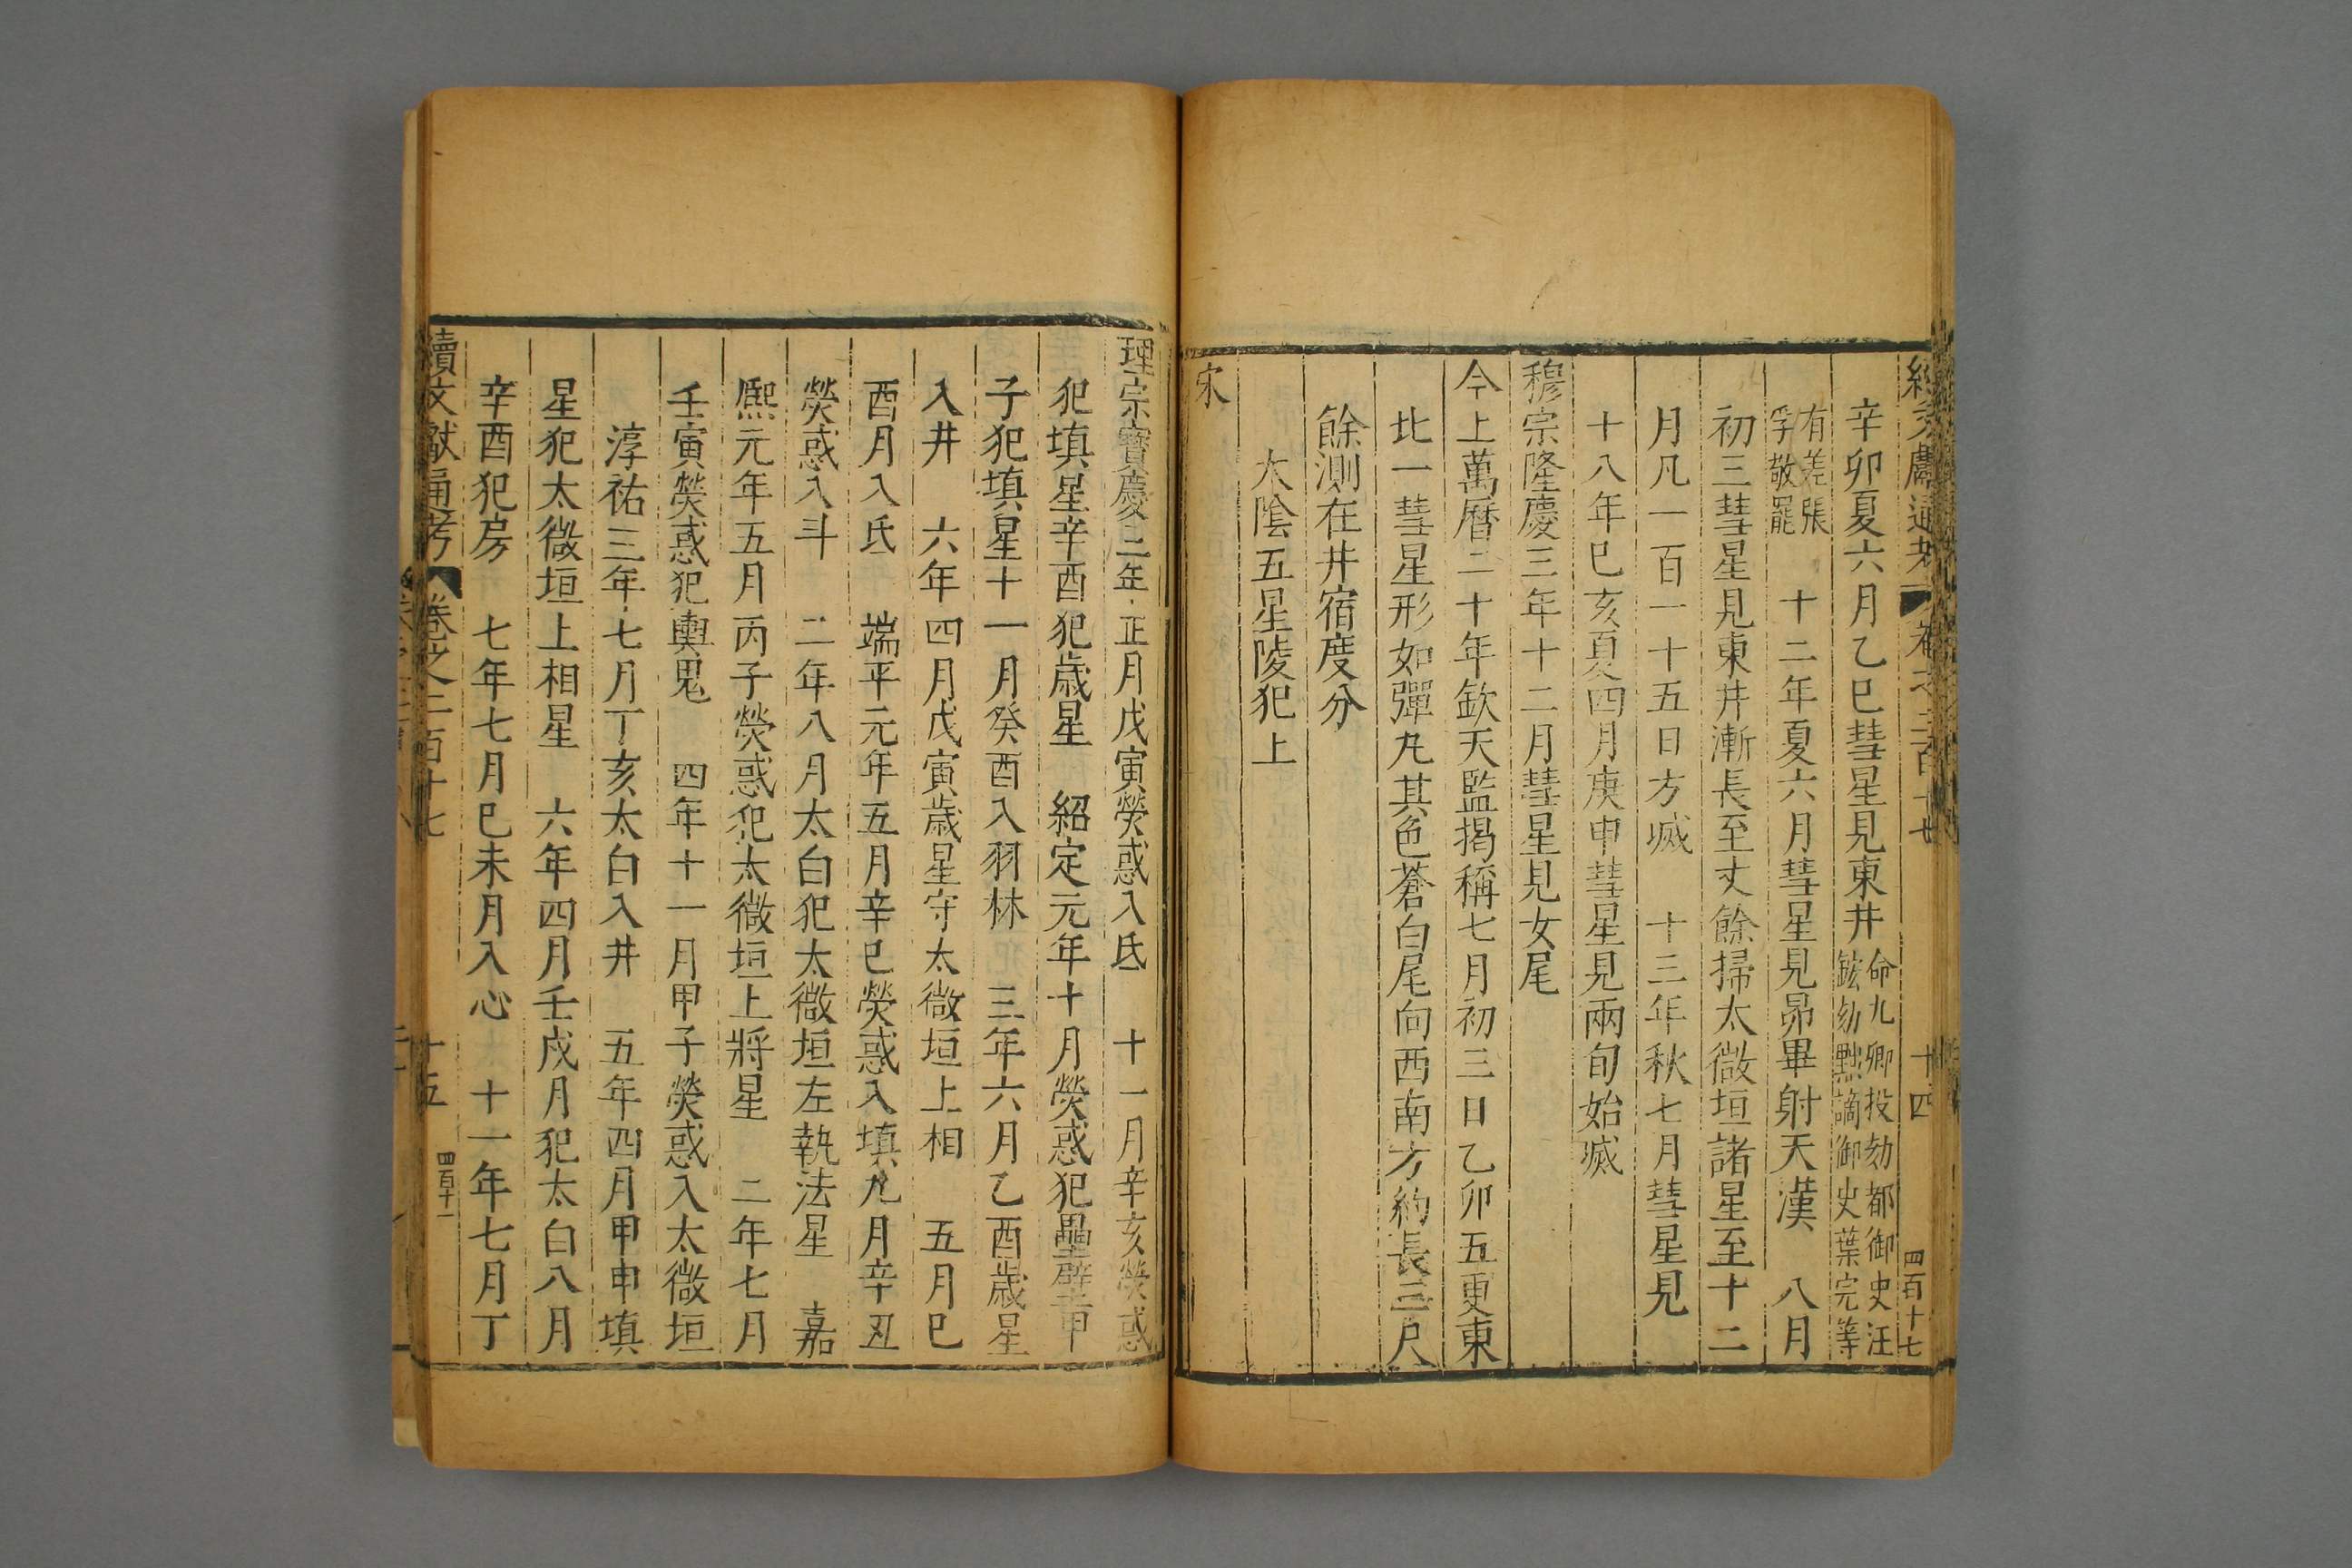 辛卯夏六月乙巳彗星見東井命九卿投劾都御史汪
鋐劾黜謫御史葉完等
有差張
孚敬罷　十二年夏六月彗星見昴畢射天漢　八月
初三彗星見東井漸長至丈餘掃太微垣諸星至十二
月凡一百一十五日方滅　十三年秋七月彗星見
十八年巳亥夏四月庚申彗星見兩旬始滅
穆宗隆慶三年十二月彗星見女尾
今上萬曆二十年欽天監揭稱七月初三日乙卯五更東
北一彗星形如彈丸其色蒼白尾向西南方約長三尺
餘測在井宿度分
太陰五星陵犯上
宋
十四
四百十七
理宗寶慶二年正月戊寅熒惑入氐　十一月辛亥熒惑
犯填星辛酉犯歲星　紹定元年十月熒惑犯壘壁甲
子犯填星十一月癸酉入羽林　三年六月乙酉歲星
入井　六年四月戊寅歲星守太微垣上相　五月巳
酉月入氐　端平元年五月辛巳熒惑入填九月辛丑
熒惑入斗　二年八月太白犯太微垣左執法星　嘉
熙元年五月丙子熒惑犯太微垣上將星　二年七月
壬寅熒惑犯輿鬼　四年十一月甲子熒惑入太微垣
淳祐三年七月丁亥太白入井　五年四月甲申填
星犯太微垣上相星　六年四月壬戌月犯太白八月
辛酉犯房　七年七月巳未月入心　十一年七月丁
續文獻通考　卷之二百十七　十五
四百十一